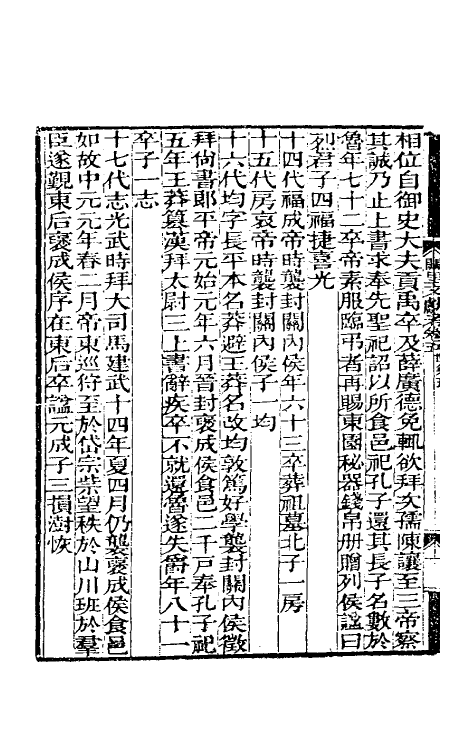 相位自御史大夫貢禹卒及薛廣德免輒欲拜次孺陳讓至三帝察
其誠乃止上書求奉先聖祀詔以所食邑祀孔子還其長子名數於
魯年七十二卒帝素服臨弔者再賜東園秘器錢帛册贈列侯謚曰
烈君子四福捷喜光
十四代福成帝時襲封關內侯年六十三卒葬祖墓北子一房
十五代房哀帝時襲封關內侯子一均
十六代均字長平本名莽避王莽名改均敦篤好學襲封關內侯徵
拜尙書郞平帝元始元年六月晉封褒成侯食邑二千戸奉孔子祀
五年王莽簒漢拜太尉三上書辭疾卒不就還魯遂失爵年八十一
卒子一志
十七代志光武時拜大司馬建武十四年夏四月仍襲褒成侯食邑
如故中元元年春二月帝東巡狩至於岱宗祡望秩於山川班於羣
臣遂覲東后褒成侯序在東后卒謚元成子三損澍恢